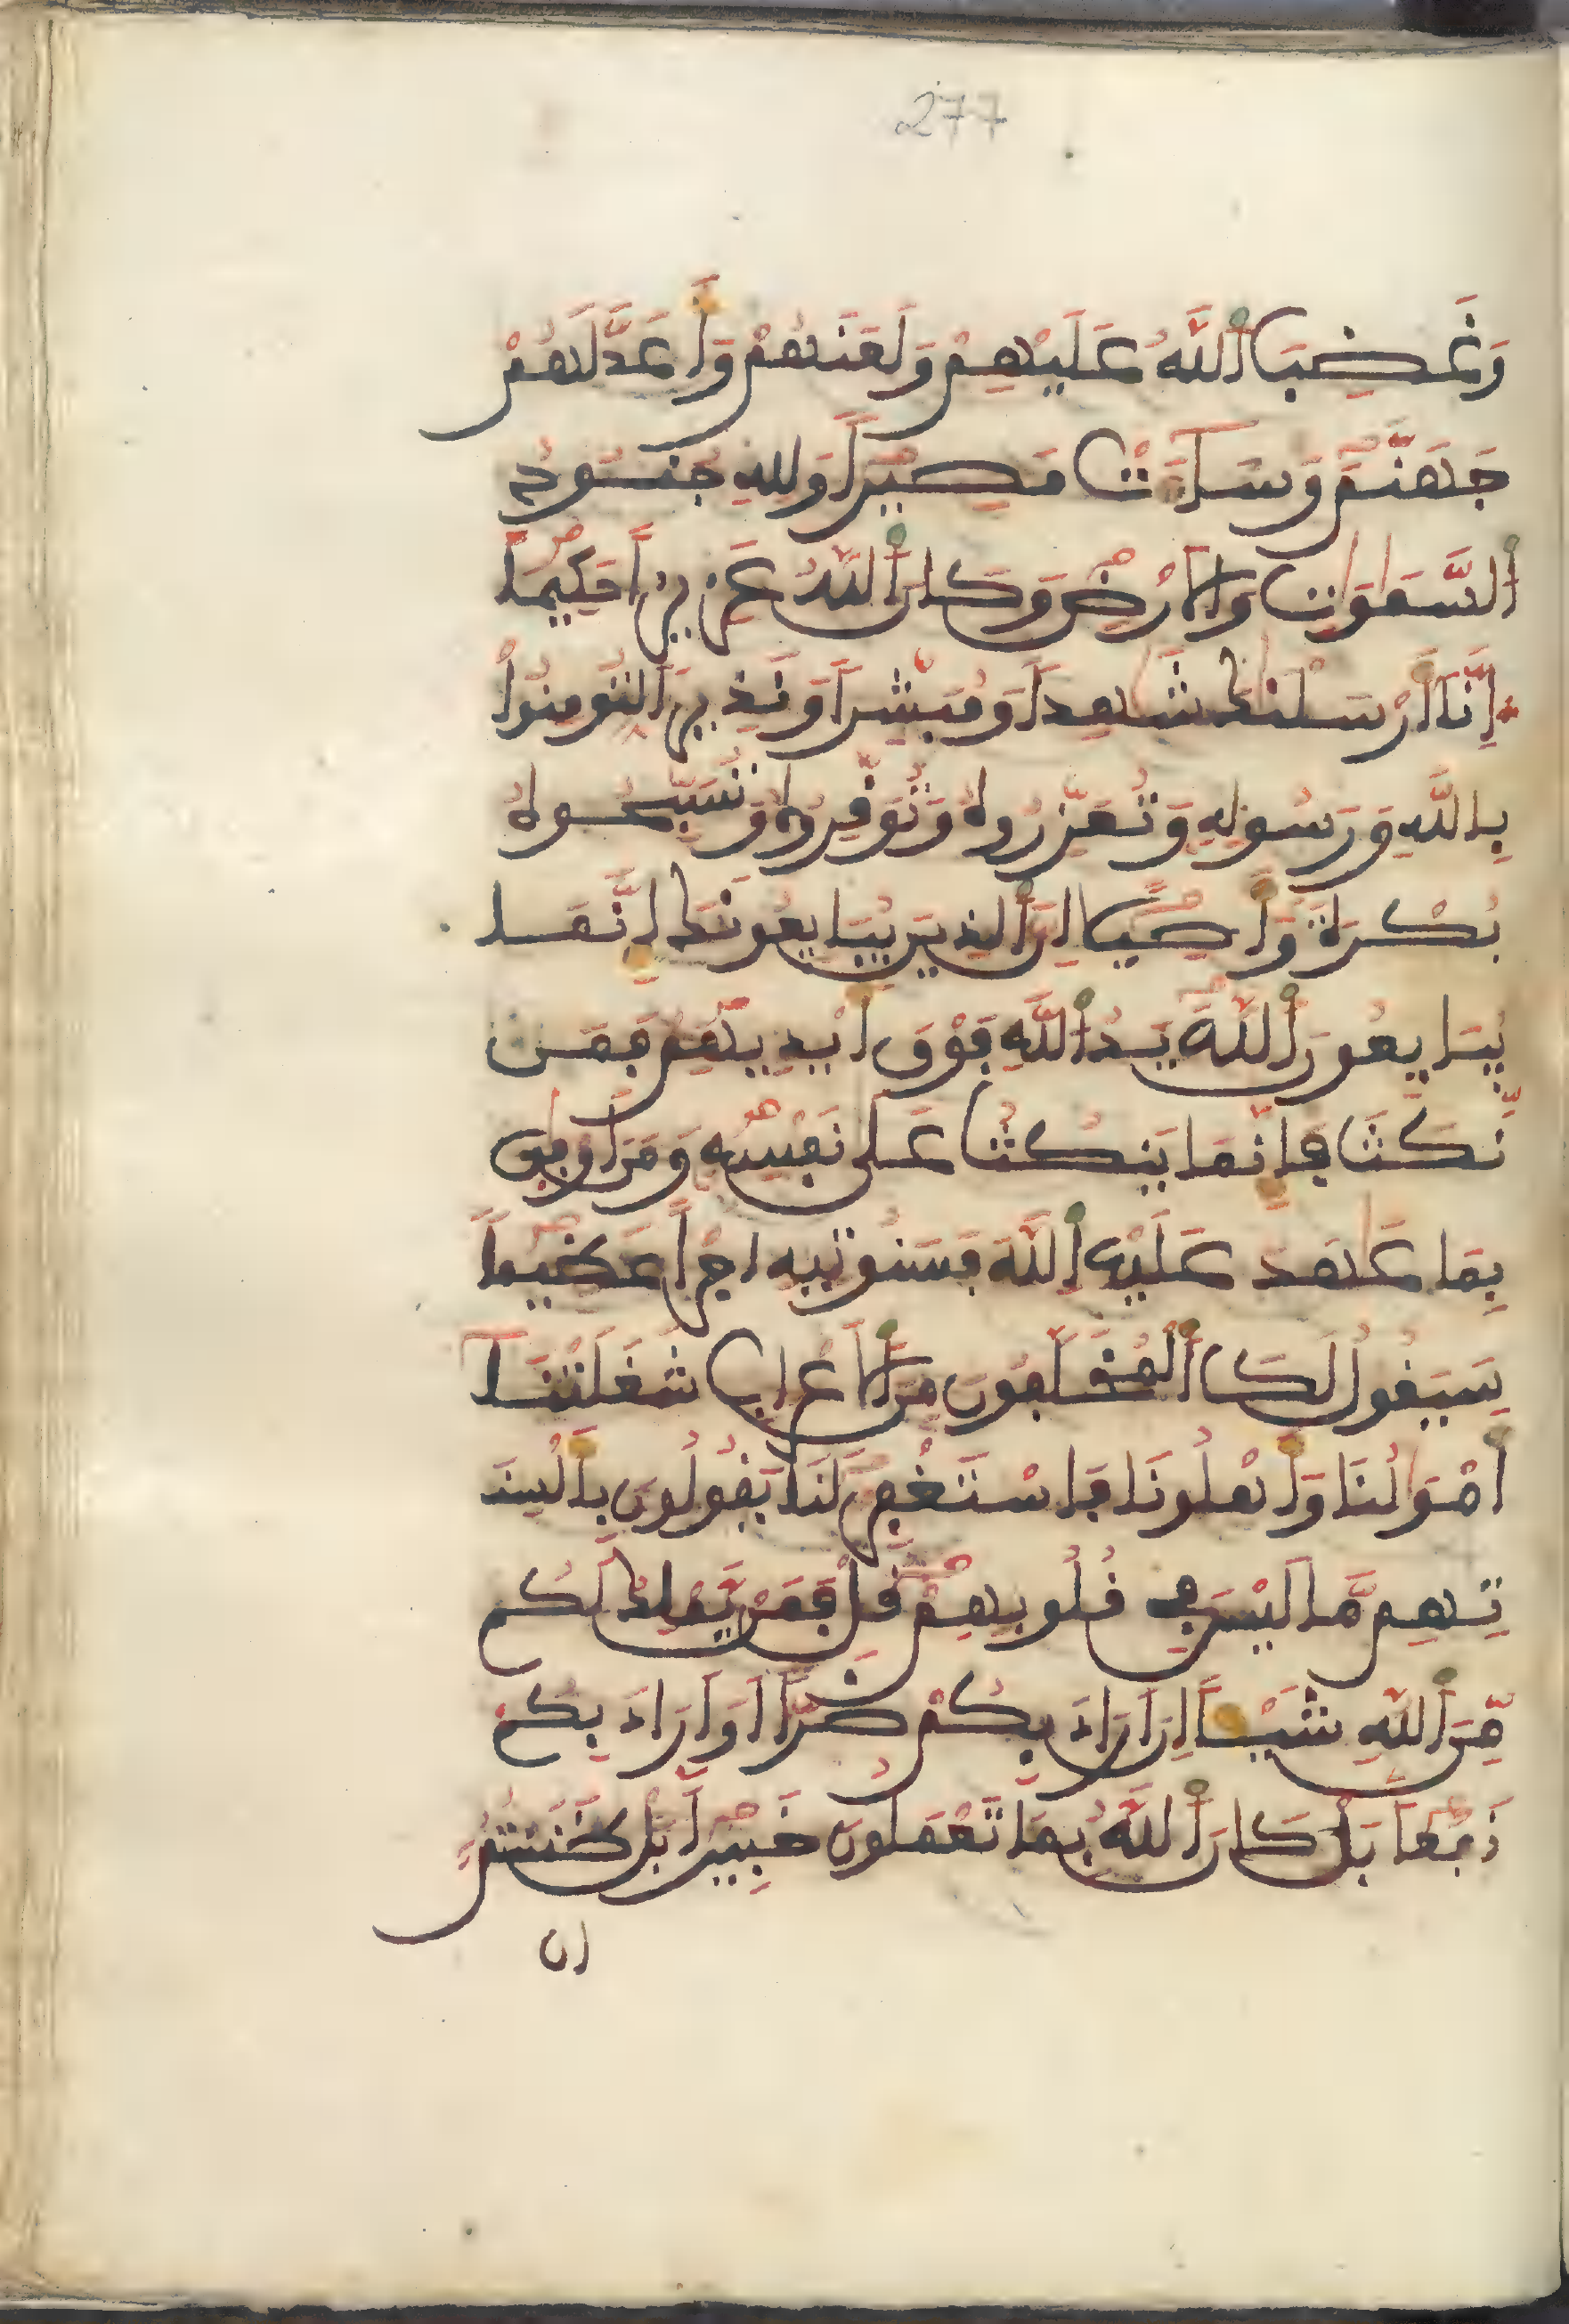 277
وَغَضِبَ اَ۬للَّهُ عَلَيْهِمْ وَلَعَنَهُمْ وَأَعَدَّ لَهُمْ
جَهَنَّمَ وَسَآءَتْ مَصِيراً وَلِلهِ جُنُودُ
اُ۬لسَّمَٰوَٰتِ وَالَارْضِ وَكَانَ اَ۬للَّهُ عَزِيزاً حَكِيماً
إِنَّا أَرْسَلْنَٰكَ شَٰهِداً وَمُبَشِّراً وَنَذِيراً لِّتُومِنُواْ
بِاللَّهِ وَرَسُولِهِ وَتُعَزِّرُوهُ وَتُوَفِّرُوهُ وَتُسَبِّحُوهُ
بُكْرَةً وَأَصِيلاً اِنَّ اَ۬لذِينَ يُبَايِعُونَكَ إِنَّمَا
يُبَايِعُونَ اَ۬للَّهَ يَدُ اُ۬للَّهِ فَوْقَ أَيْدِيهِمْ فَمَن
نَّكَثَ فَإِنَّمَا يَنكُثُ عَلَىٰ نَفْسِهِ وَمَنَ اَوْفَىٰ
بِمَا عَٰهَدَ عَلَيْهِ اِ۬للَّهَ فَسَنُوتِيهِ أَجْراً عَظِيماً
سَيَقُولُ لَكَ اَ۬لْمُخَلَّفُونَ مِنَ اَ۬لَاعْرَابِ شَغَلَتْنَا
أَمْوَٰلُنَا وَأَهْلُونَا فَاسْتَغْفِرْ لَنَا يَقُولُونَ بِأَلْسِنَ
تِهِم مَّا لَيْسَ فِے قُلُوبِهِمْ قُلْ فَمَنْ يَّمْلِكُ لَكُم
مِّنَ اَ۬للَّهِ شَيْـاً اِنَ اَرَادَ بِكُمْ ضَرّاً اَوَ اَرَادَ بِكُمْ
نَفْعاً بَلْ كَانَ اَ۬للَّهُ بِمَا تَعْمَلُونَ خَبِيراً بَلْ ظَنَنتُمُ
ان